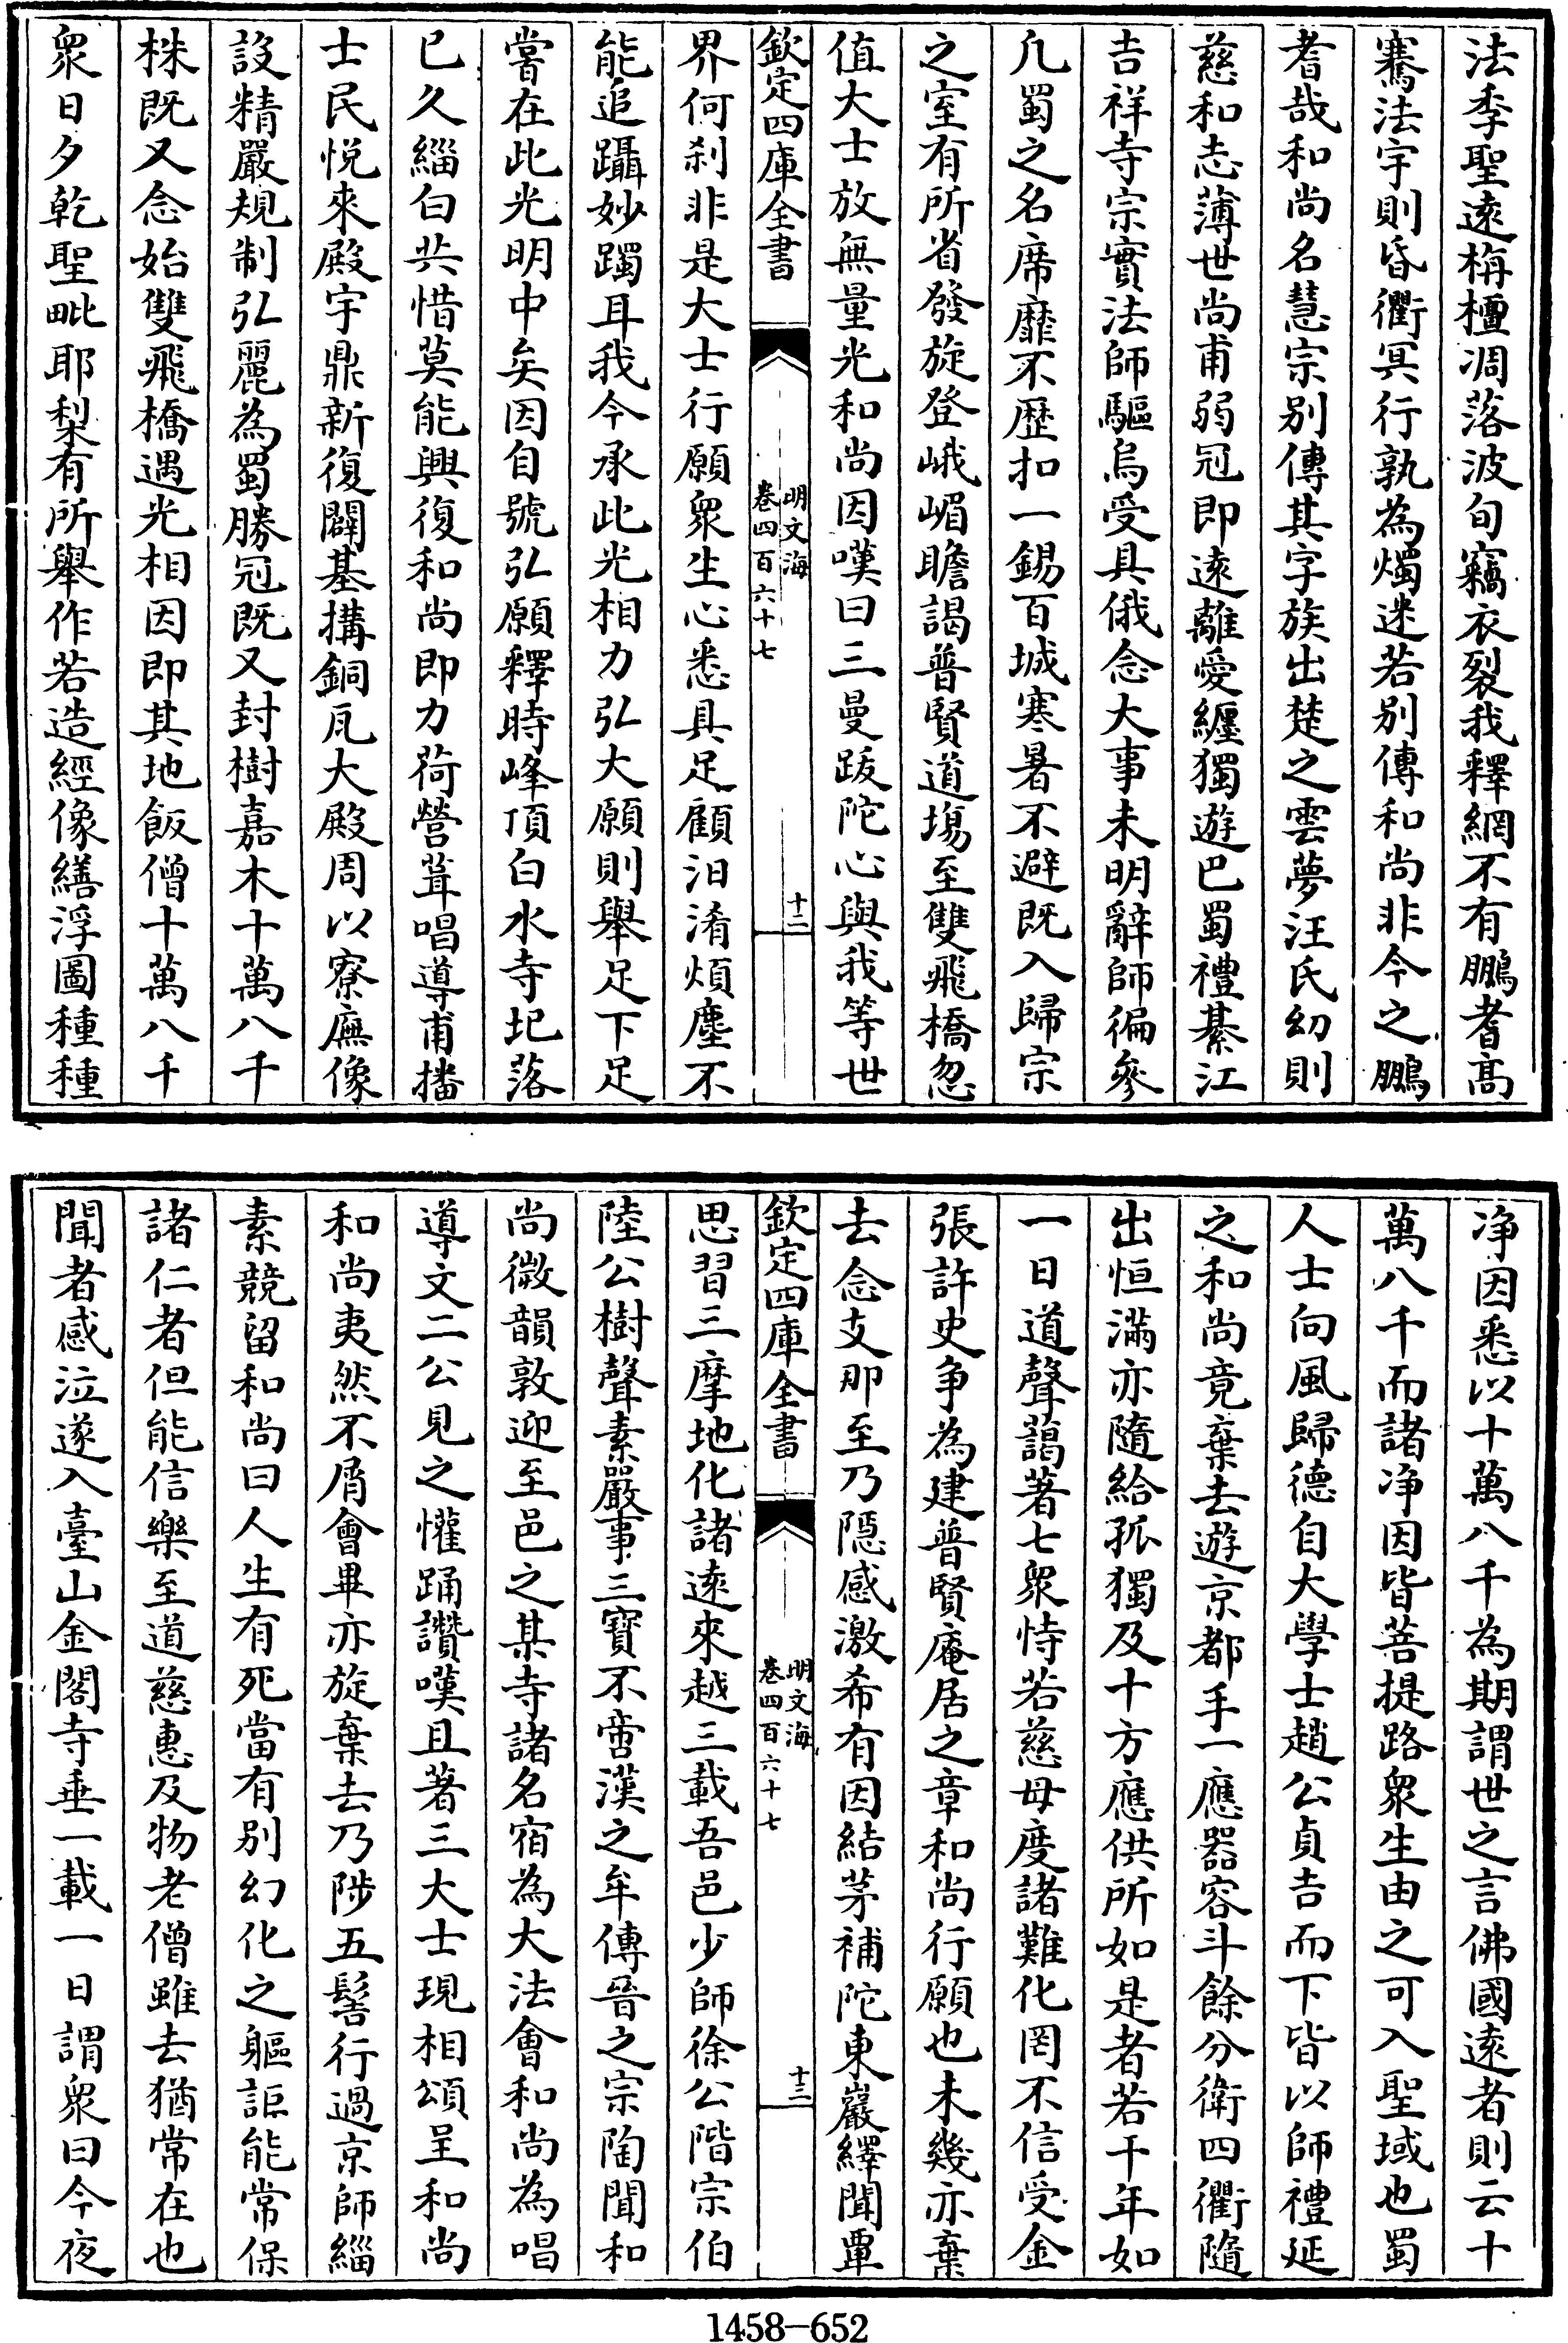 法季聖遠栴檀凋落波旬竊衣裂我釋網不有鵬耆高
騫法宇則昏衢冥行孰為燭迷若別傳和尚非今之鵬
耆哉和尚名慧宗別傳其字族出楚之雲夢汪氏幻則
慈和志薄世尚甫弱冠即遠離愛纏獨遊巴蜀禮綦江
吉祥寺宗實法師驅烏受具俄念大事未明辭師徧參
凢蜀之名席靡不歷扣一錫百城寒暑不避既入歸宗
之室有所省發旋登峨嵋瞻謁普賢道塲至雙飛橋忽
值大士放無量光和尚因嘆曰三曼跋陀心與我等世
欽定四庫全書
明文海
卷四百六十七
十二
界何刹非是大士行願衆生心悉具足顧汨淆煩塵不
能追躡妙躅耳我今承此光相力弘大願則舉足下足
嘗在此光明中矣因自號弘願釋時峰頂白水寺圮落
已久緇白共惜莫能興復和尚即力荷營葺唱導甫播
士民悦來殿宇鼎新復闢基搆銅瓦大殿周以寮廡像
設精嚴規制弘麗為蜀勝冠既又封樹嘉木十萬八千
株既又念始雙飛橋遇光相因即其地飯僧十萬八千
衆日夕乾聖毗耶梨有所舉作若造經像繕浮圖種種
净因悉以十萬八千為期謂世之言佛國遠者則云十
萬八千而諸净因皆菩提路衆生由之可入聖域也蜀
人士向風歸德自大學士趙公貞吉而下皆以師禮延
之和尚竟棄去遊京都手一應器容斗餘分衛四衢隨
出恒滿亦隨給孤獨及十方應供所如是者若干年如
一日道聲藹著七衆恃若慈母度諸難化罔不信受金
張許史争為建普賢庵居之章和尚行願也未幾亦棄
去念支那至乃隠感激希有因結茅補陀東巖繹聞覃
欽定四庫全書
明文海
卷四百六十七
十三
思習三摩地化諸遠來越三載吾邑少師徐公階宗伯
陸公樹聲素嚴事三寳不啻漢之牟傳晉之宗陶聞和
尚微韻敦迎至邑之某寺諸名宿為大法會和尚為唱
導文二公見之懽踊讚嘆且著三大士現相頌呈和尚
和尚夷然不屑會畢亦旋棄去乃陟五髻行過京師緇
素競留和尚曰人生有死當有别幻化之軀詎能常保
諸仁者但能信樂至道慈惠及物老僧雖去猶常在也
聞者感泣遂入臺山金閣寺垂一載一日謂衆曰今夜
1458—652